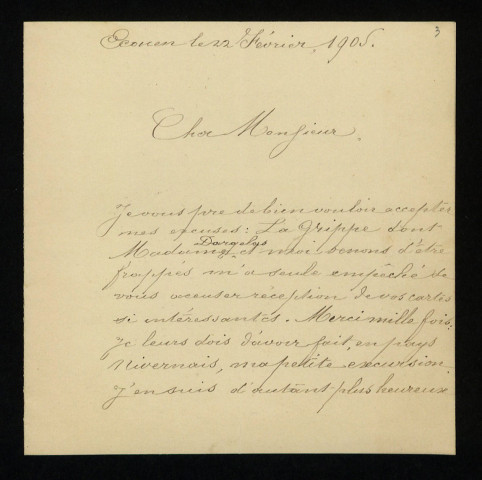 3
Ecouen le 22 Février, 1905.
Cher Monsieur.
Je vous prie de bien vouloir accepter
mes excuses: La Grippe dont
Dargelys
Madame et moi venons d'être
frappés m'a seule empêché de
vous accuser réception de vos cartes
si intéressantes. Merci mille fois;
je leurs dois d'avoir fait, en pays
Nivernais, ma petite excursion.
J'en suis d'autant plus heureux